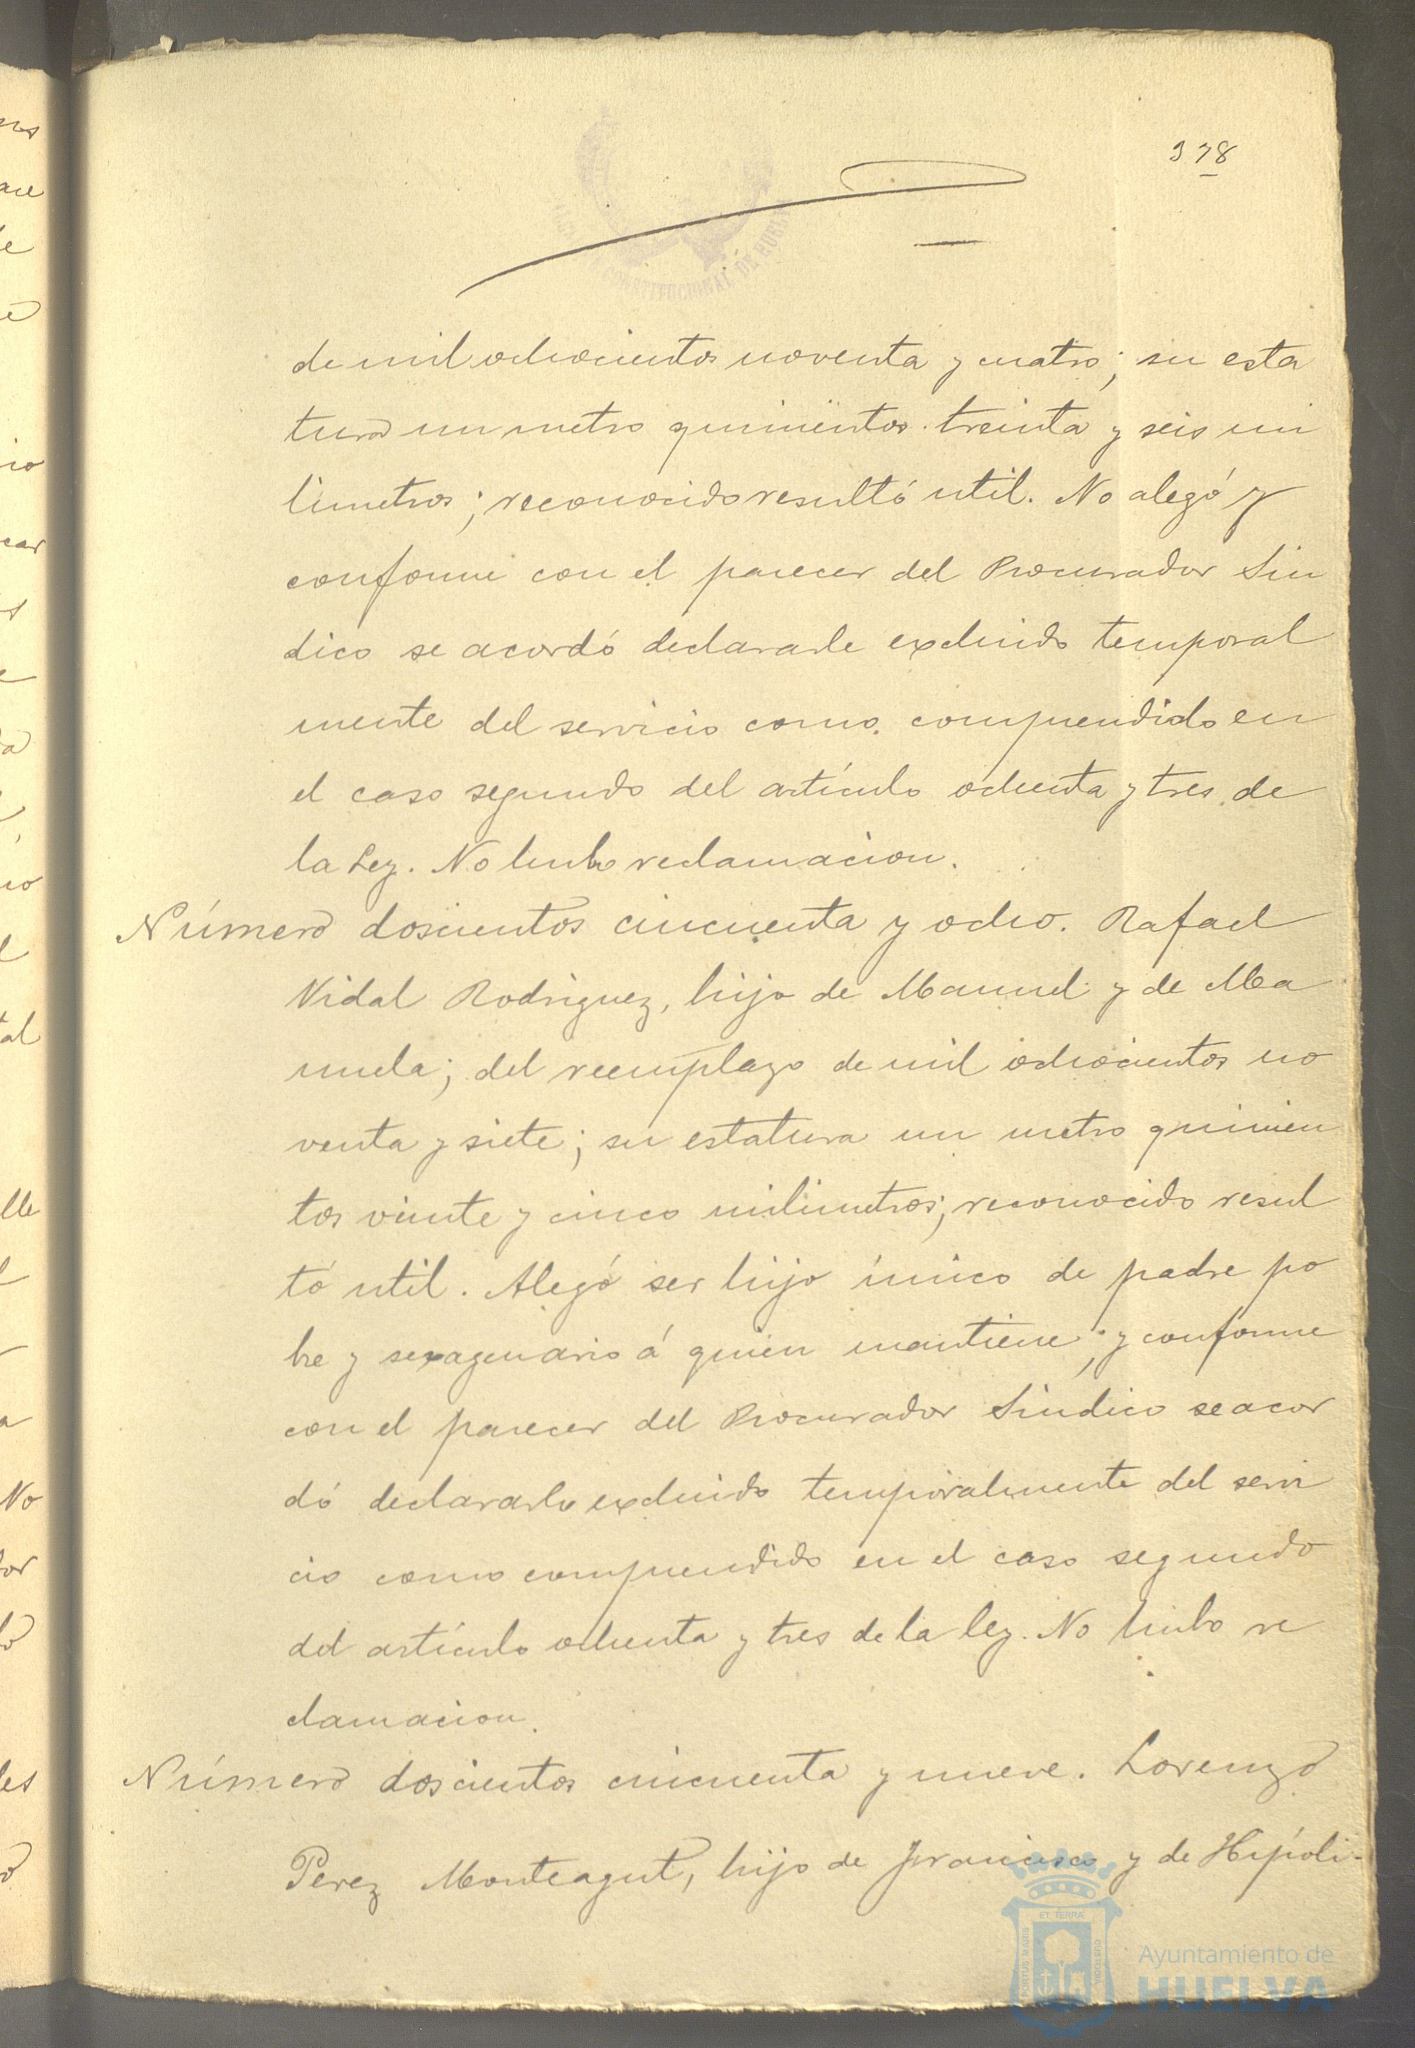 378
de mil ochocientos noventa y cuatro; su esta
tura un metro quinientos treinta y seis mi
limetros; reconocido resultó util. No alegó y
conforme con el parecer del Procurador Sin
dico se acordó declararle excluido temporal
mente del servicio como comprendido en
el caso segundo del artículo ochenta y tres de
la Ley. No hubo reclamacion.
Número doscientos cincuenta y ocho. Rafael
Vidal Rodriguez, hijo de Manuel y de Ma
nuela; del reemplazo de mil ochocientos no
venta y siete; su estatura un metro quinien
tos veinte y cinco milimetros; reconocido resul
tó util. Alegó ser hijo único de padre po
bre y sexagenario á quien mantiene; y conforme
con el parecer del Procurador Sindico se acor
dó declararlo excluido temporalmente del servi
cio como comprendido en el caso segundo
del artículo ochenta y tres de la ley. No hubo re
clamacion.
Número doscientos cincuenta y nueve. Lorenzo
Perez Monteagut, hijo de Francisco y de Hipóli-
Ayuntamiento de
HUELVA